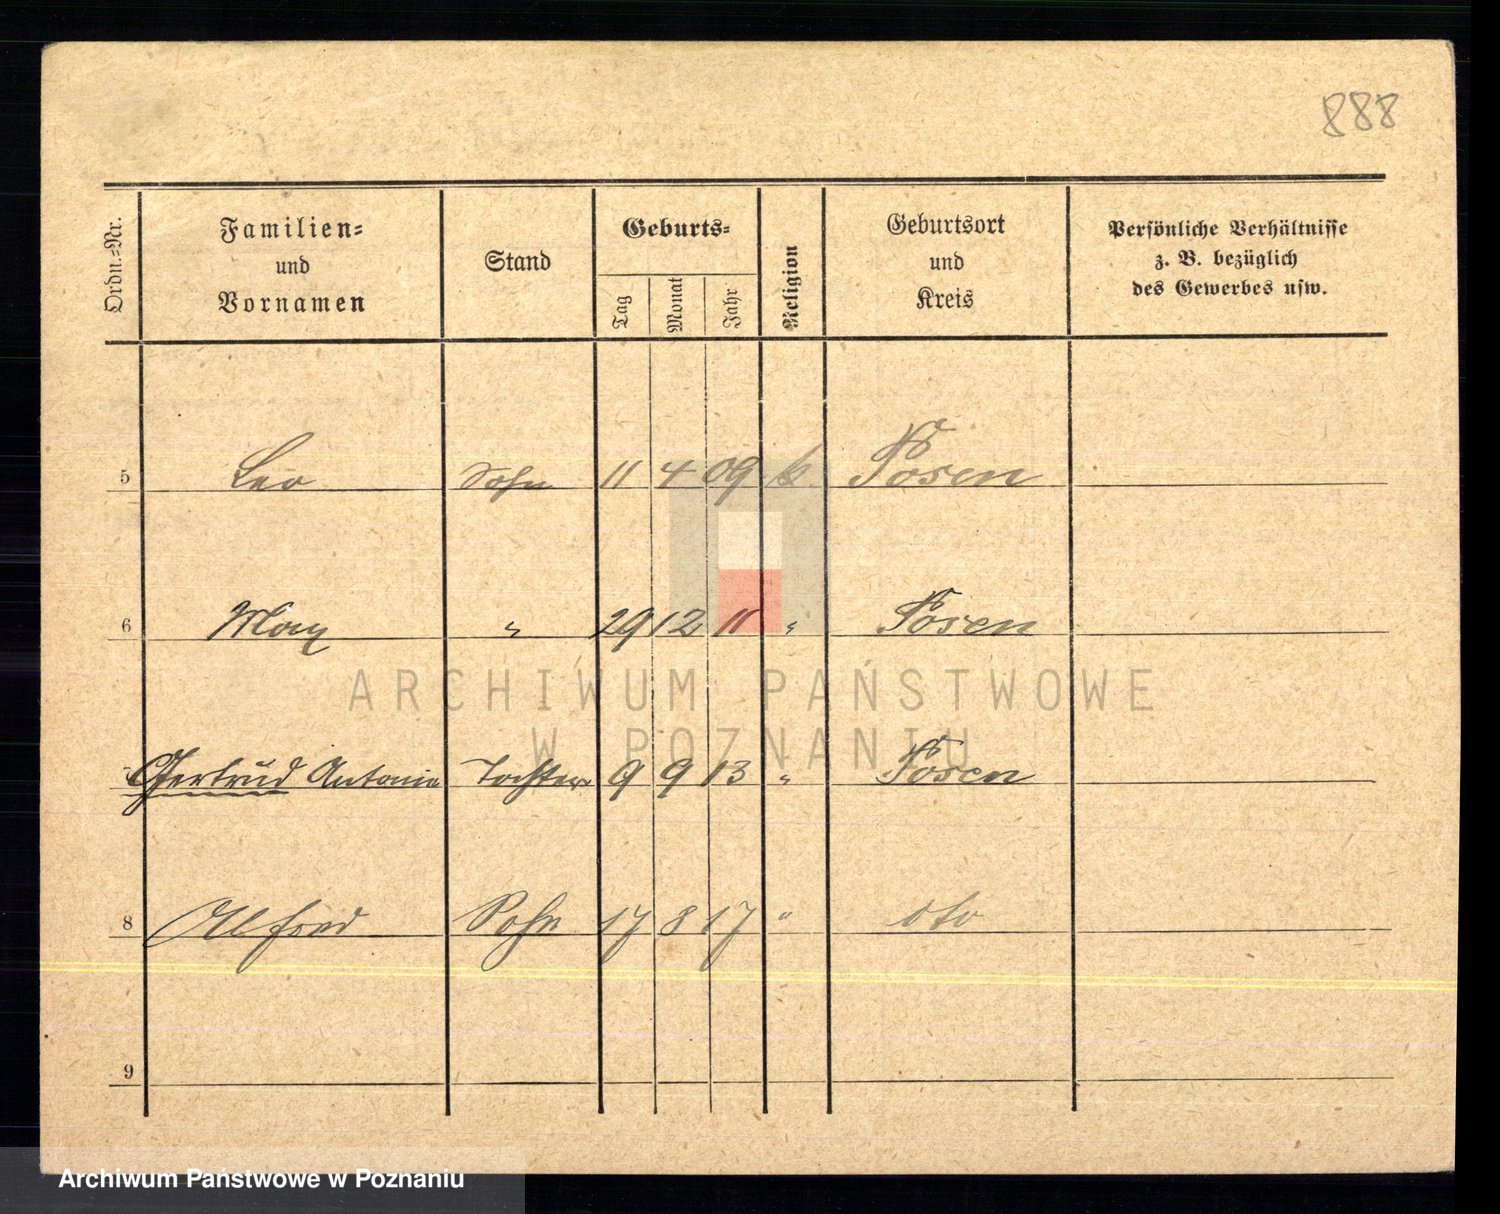 888
Ordn.-Nr.
Familien-
und
Vornamen
Stand
Geburts-
Tag
Monat
Jahr
Religion
Geburtsort
und
Kreis
Persönliche Verhältnisse
z. B. bezüglich
des Gewerbes usw.
5 Leo Sohn 11 4 09 k Posen
6 Max " 29 12 11 " Posen
Gertrud Antonie Tochter 9 9 13 " Posen
8 Alfred Sohn 17 8 17 " dto
9
ARCHIWUM PAŃSTWOWE
W POZNANIU
Archiwum Państwowe w Poznaniu